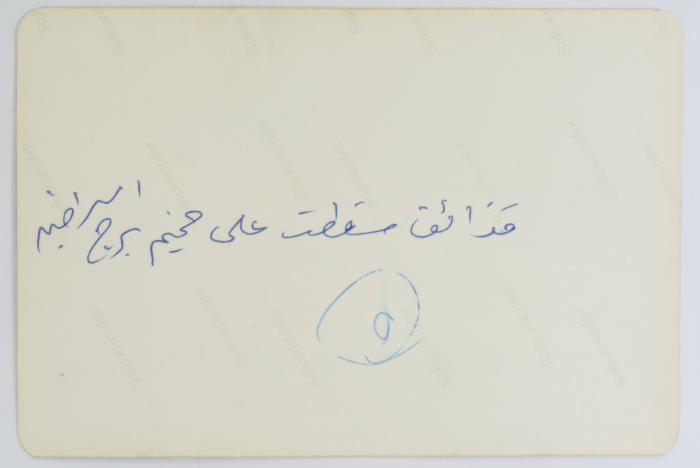 قذائف سقطت على مخيم برج البراجنة